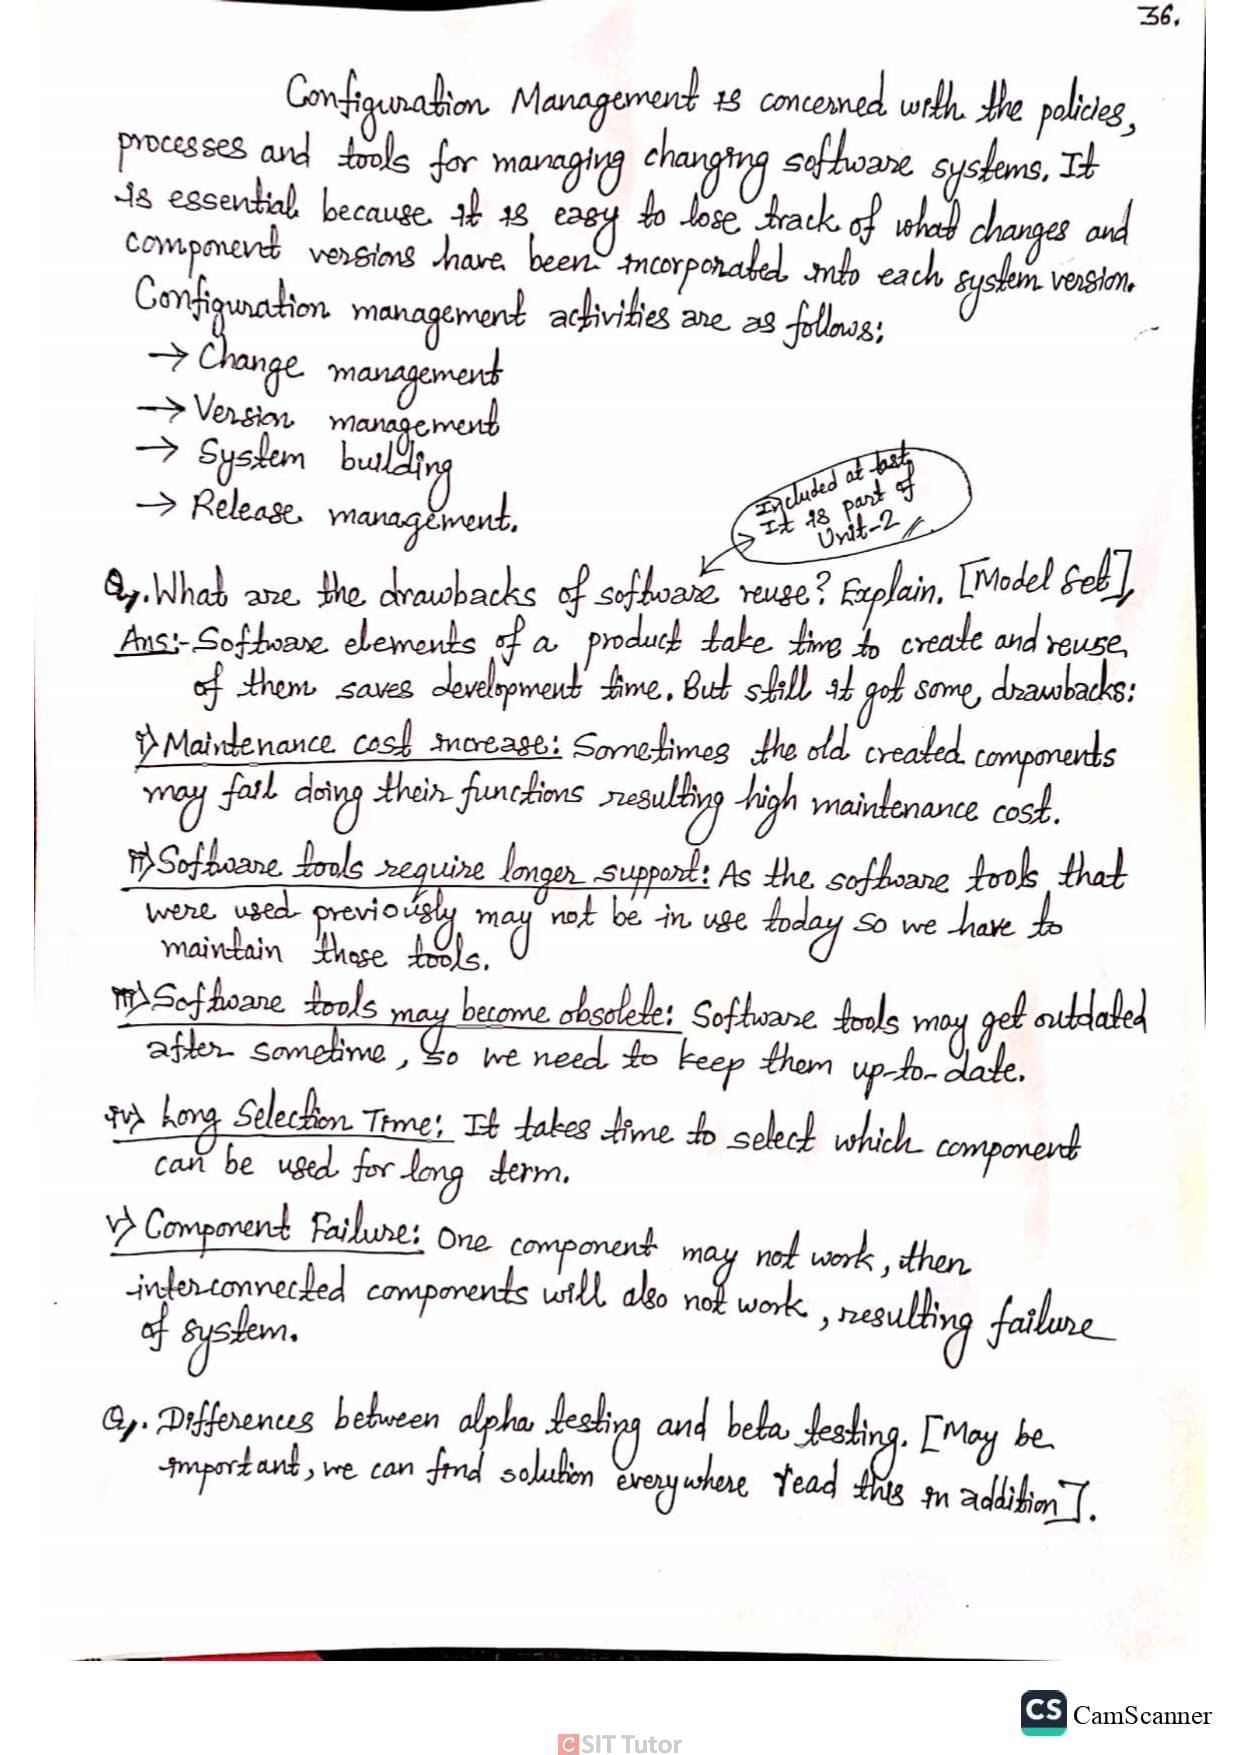 36.
Configuration Management is concerned with the policies,
processes and tools for managing changing software systems. It
is essential because it is easy to lose track of what changes and
component versions have been incorporated into each system version.
Configuration management activities are as follows:
→ Change management
→ Version management
→ System building
→ Release management.
Included at last,
It is part of
Unit-2
Q. What are the drawbacks of software reuse? Explain. [Model Set]
Ans:- Software elements of a product take time to create and reuse
of them saves development time. But still it got some drawbacks:
i) Maintenance cost increase: Sometimes the old created components
may fail doing their functions resulting high maintenance cost.
ii) Software tools require longer support: As the software tools that
were used previously may not be in use today so we have to
maintain those tools.
iii) Software tools may become obsolete: Software tools may get outdated
after sometime, so we need to keep them up-to-date.
iv) Long Selection Time: It takes time to select which component
can be used for long term.
v) Component Failure: One component may not work, then
interconnected components will also not work, resulting failure
of system.
Q. Differences between alpha testing and beta testing. [May be
important, we can find solution everywhere read this in addition].
CS CamScanner
CSIT Tutor